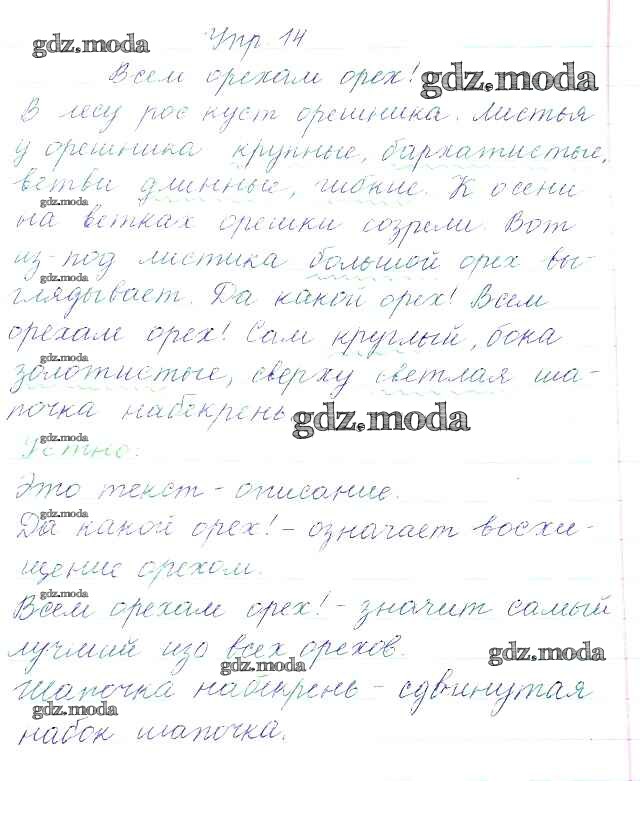 Упр. 14
gdz.moda
Всем орехам орех!
gdz.moda
В лесу рос куст орешника. Листья
у орешника крупные, бархатистые,
ветви длинные, гибкие. К осени
gdz.moda
на ветках орешки созрели. Вот
из-под листика большой орех вы-
gdz.moda
глядывает. Да какой орех! Всем
орехам орех! Сам круглый, бока
gdz.moda
золотистые, сверху светлая ша-
почка набекрень
gdz.moda
gdz.moda
Устно:
Это текст - описание.
gdz.moda
Да какой орех! - означает восхи-
щение орехом.
gdz.moda
Всем орехам орех! - значит самый
лучший изо всех орехов.
gdz.moda
gdz.moda
Шапочка набекрень - сдвинутая
gdz.moda
набок шапочка.